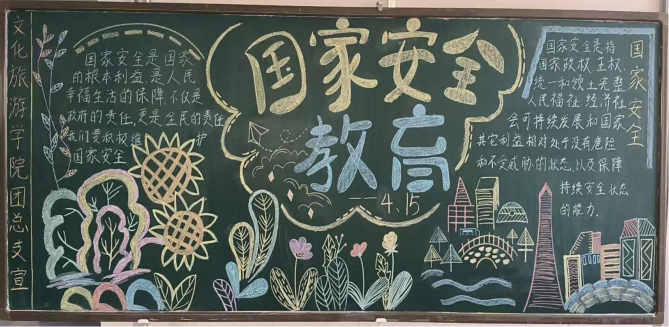 文化旅游学院团总支宣
国家安全是国家
的根本利益是人民
幸福生活的保障,不仅是
政府的责任,更是全民的责任
我们要积极维护
国家安全
国家安全
教育
——4.15
国家安全
国家安全是指
国家政权、主权、
统一和领土完整
人民福祉、经济社
会可持续发展和国家
其它利益相对处于没有危险
和不受威胁的状态,以及保障
持续安全状态
的能力.